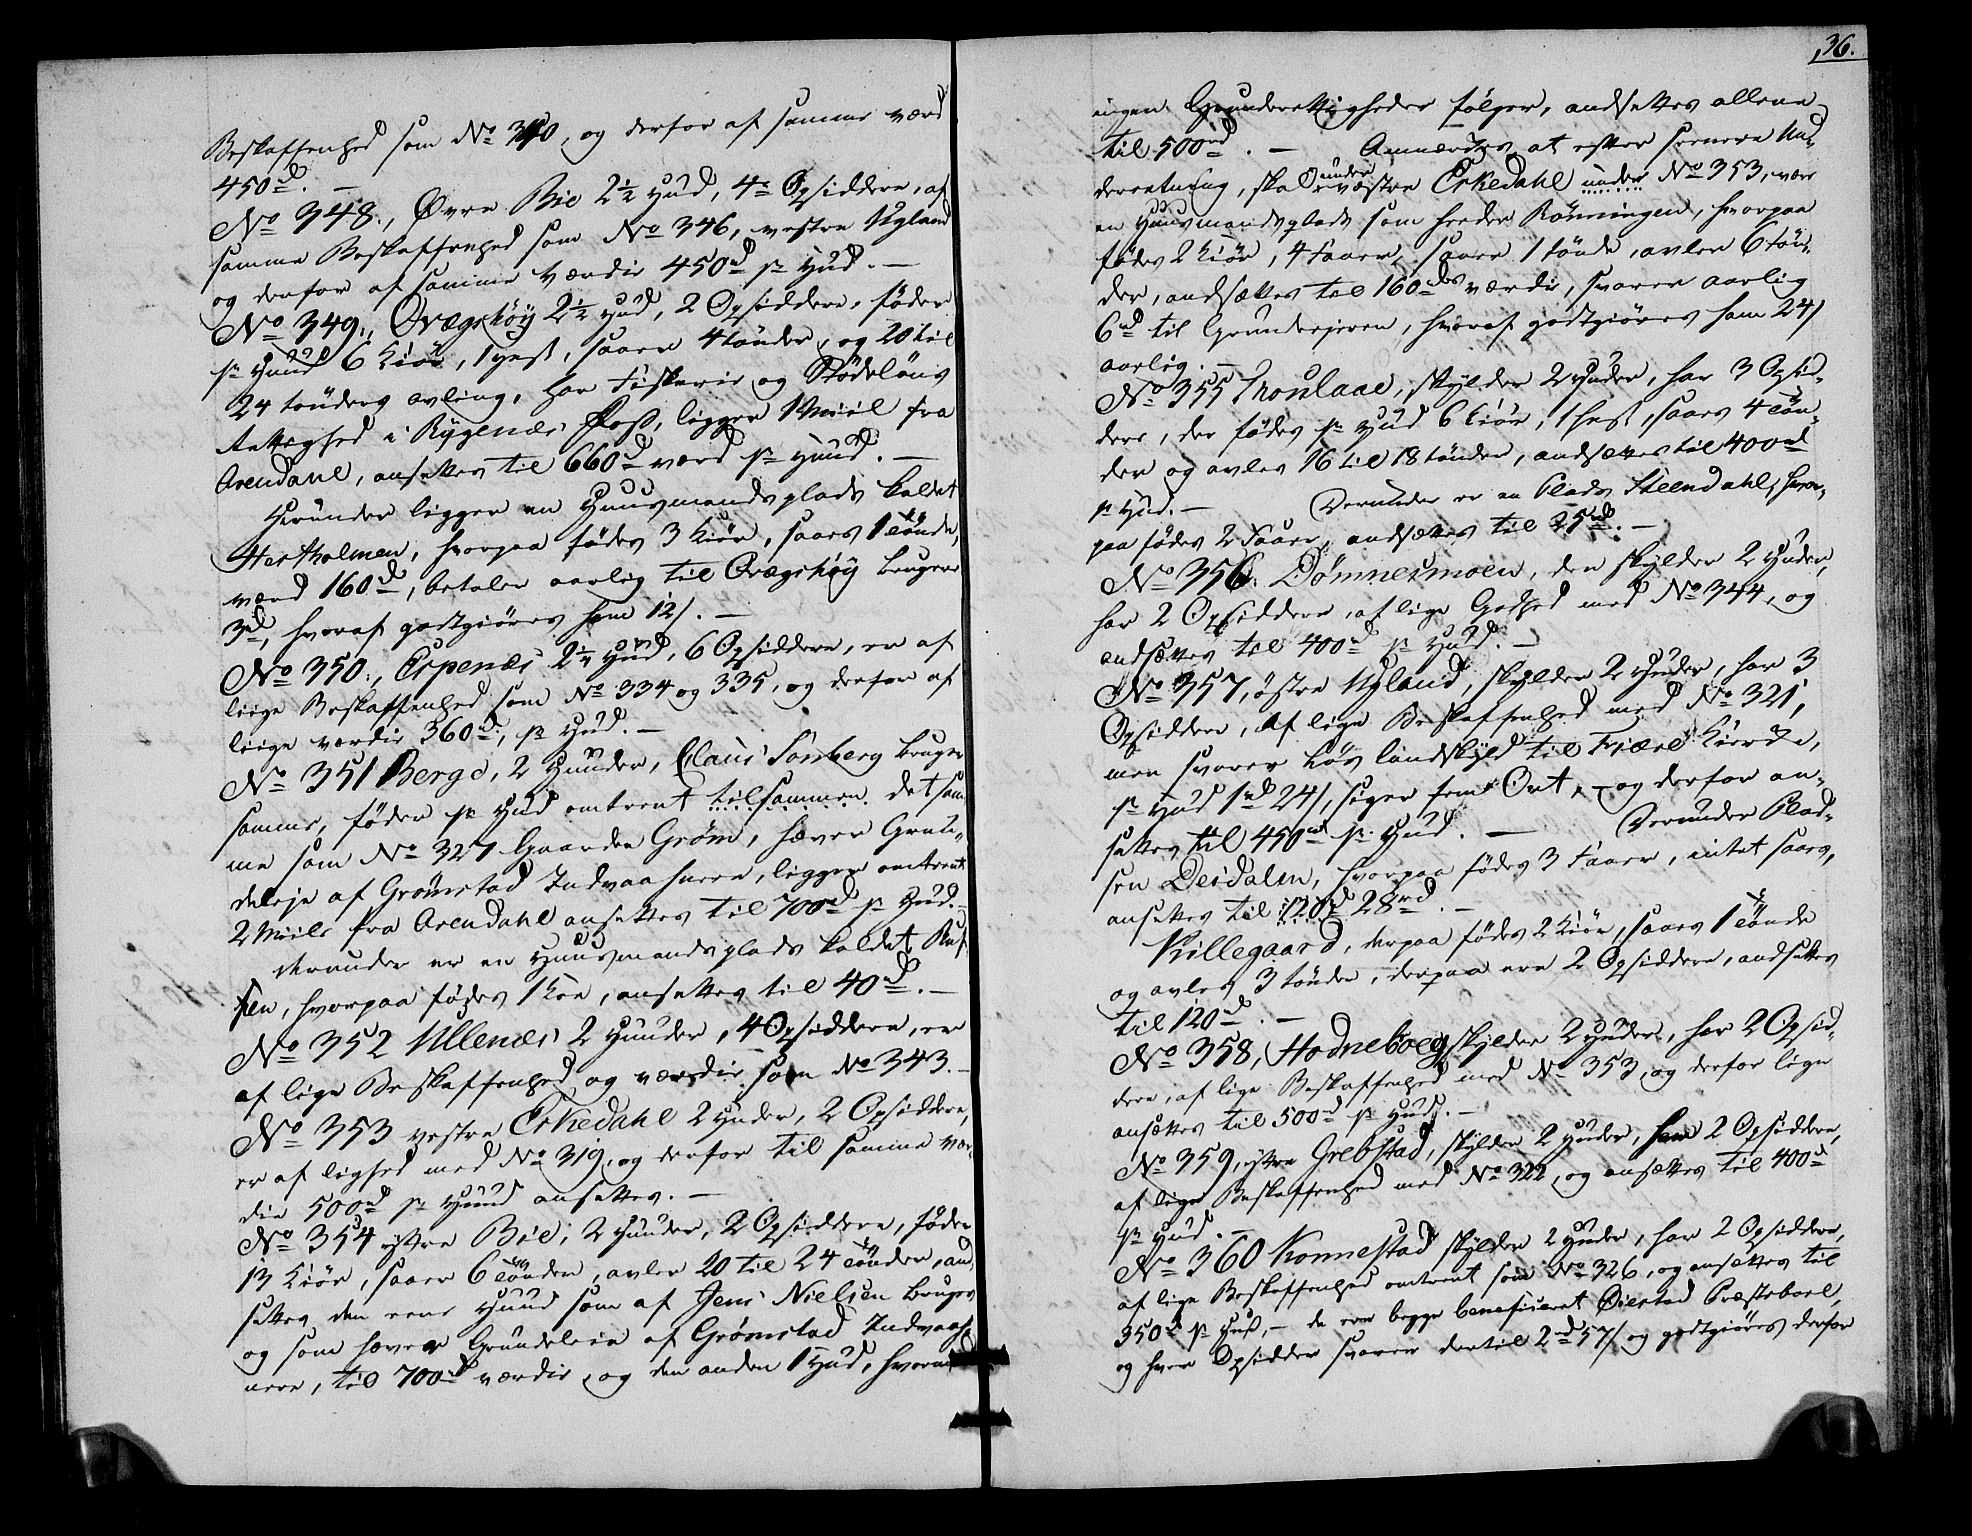 Beskaffenhed som No 340, og derfor af samme værd
450rd. –
No 348., Øvre Bie 2½ Hud, 4re Opsiddere, af
samme Beskaffenhed som No 346, vestre Ugland
og derfor af samme Værdie 450rd pr Hud. –
No 349., Qvægshöy 2½ Hud, 2 Opsiddere, föder
pr Huud 6 Kiör, 1 Hest, saaer 4 tönder, og 20 til
24 tönders avling, har Fiskerie og Flödeløns
Rettighed i Rygenæs Foss, ligger 1 Miil fra
Arendahl, ansettes til 660rd værd pr Huud. –
Herunder ligger en Huusmands plads kaldet
Hestholmen, hvorpaa födes 3 Kiör, saaes 1 Tönde,
værd 160rd, betaler aarlig til Qvægshöy Brugere
3rd, hvoraf godtgiöres ham 12s. –
No 350., Espenæs 2¼ Hud, 6 Opsiddere, er af
liige Beskaffenhed som No 334 og 335, og derfor af
liige værdie 360rd, pr Hud. –
No 351 Berge, 2 Huuder, Claus Sonberg bruger
samme, föder pr Hud omtrent tilsammen det sam¬
me som No 327 Gaarden Gröm, hæver Grun¬
deleje af Grömstad Indvaanere, ligger omtrent
2 Miile fra Arendahl ansettes til 700rd pr Hud. –
Herunder er en Huusmands plads kaldet
hvorpaa födes 1 Koe, ansettes til 40rd. –
No 352 Ullenæs 2 Huuder, 4 Opsiddere, er
af lige Beskaffenhed og værdie som No 343. –
No 353 vestre Erkedahl 2 Huder, 2 Opsiddere,
er af lighed med No 319, og derfor til samme vær¬
die 500rd pr Huud ansettes. –
No 354 ystre Bie, 2 Huuder, 2 Opsiddere, föder
13 Kiör, saaer 6 Tönder, avler 20 til 24 Tönder, an¬
settes den eene Huud som af Jens Nielsen bruges
og som hæver Grundeleie af Grömstad Indvaa¬
nere, til 700rd værdie, og den anden 1 Hud, hvormed
36.
ingen Grunderettigheder fölger, andsettes allene
til 500rd. – Anmærkes at efter seenere Un¬
derretning, skal under væstre Erkedahl under No 353, være
en Huusmandsplads som heeder Rönningen, hvorpaa
födes 2 Kiör, 4 Faaer, saaes 1 tönde, avler 6 tön¬
der, andsættes til 160rds værdie, svarer aarlig
6rd til Grundejeren, hvoraf godtgiöres ham 24s
aarlig. –
No 355 Tronlaae, skylder 2 Huder, har 3 Opsid¬
dere, der födes pr Hud 6 Kiör, 1 Hest, saaes 4 Tön¬
der og avles 16 til 18 tönder, andsættes til 400rd
pr Hud. – Derunder er en Plads Steendahl, hvor¬
paa födes 2 Faaer, andsættes til 25rd. –
No 356. Dömnesmoen, den skylder 2 Huder,
har 2 Opsiddere, af lige Godhed med No 344, og
andsættes til 400rd pr Hud. –
No 357, östre Ugland, skylder 2 Huder, har 3
Opsiddere, af lige Beskaffenhed med No 321,
men svarer Löv landskyld til Fjære Kierke,
pr Hud 1rd 24s, siger fem Ort, – og derfor an¬
settes til 450rd pr Hud. – Derunder Plad¬
sen Deidalen, hvorpaa födes 3 Faaer, intet saaes,
ansettes til 120rd 28rd. –
Killegaard, derpaa födes 2 Kiör, saaes 1 Tönde
og avles 3 tönder, derpaa ere 2 Opsiddere, andsettes
til 120rd. –
No 358, Hodneborg skylder 2 Huder, har 2 Opsid¬
dere, af lige Beskaffenhed med No 353, og derfor lige
ansættes til 500rd pr Hud. –
No 359, ystre Grebstad, skylder 2 Huder, har 2 Opsiddere,
af lige Beskaffenhed med No 322, og ansættes til 400rd
pr Hud. –
No 360 Konnestad skylder 2 Huder, har 2 Opsiddere,
af lige Beskaffenhed omtrent som No 326, og ansettes til
350rd pr Hud, – de ere begge beneficeret Öiestad Præsteboel,
og hver Opsidder svarer dertil 2rd 57s og godtgiöres derfor